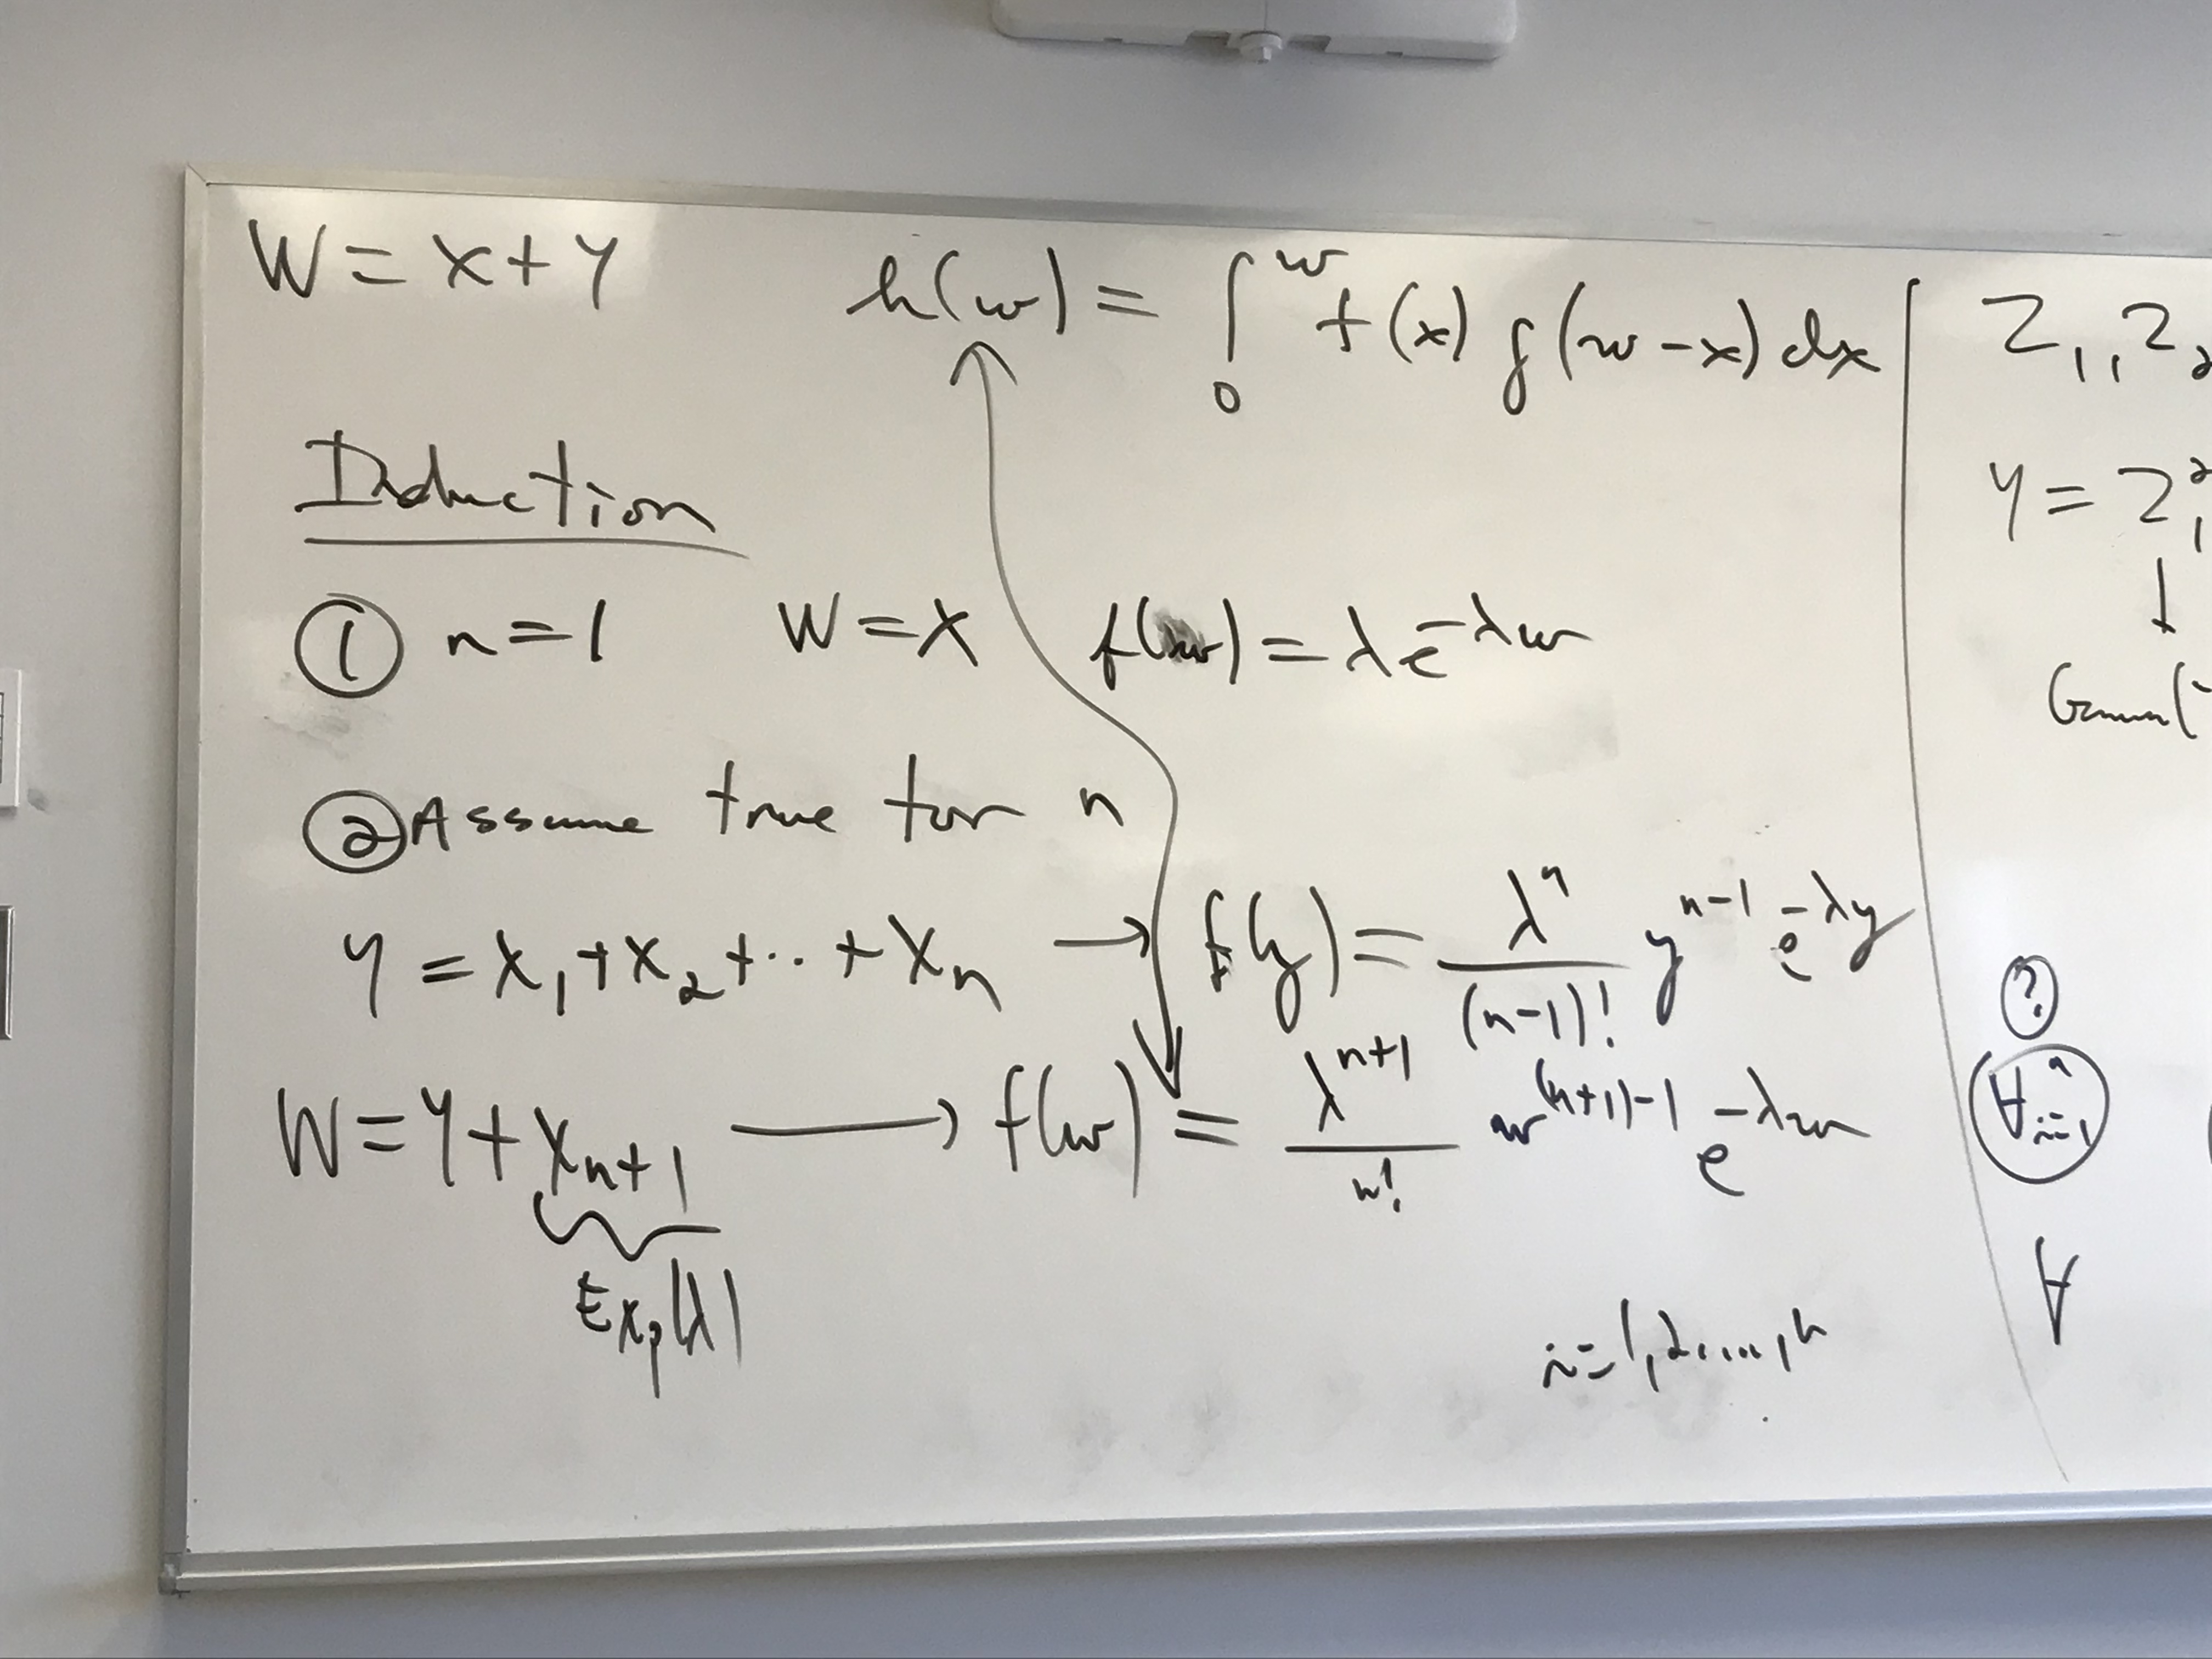 W = X + Y
h(w) = ∫₀ʷ f(x) g(w-x) dx
Induction
① n=1 W=X f(w) = λe^{-λw}
② Assume true for n
Y = X₁+X₂+··+Xₙ → f(y) = λⁿ/(n-1)! y^{n-1} e^{-λy}
W = Y + X_{n+1} → f(w) = λ^{n+1}/n! w^{(n+1)-1} e^{-λw}
Exp(λ)
i=1,2,...,n
Z₁, Z₂
Y = Z₁²
↓
?
∀ⁿ_{i=1}
∀